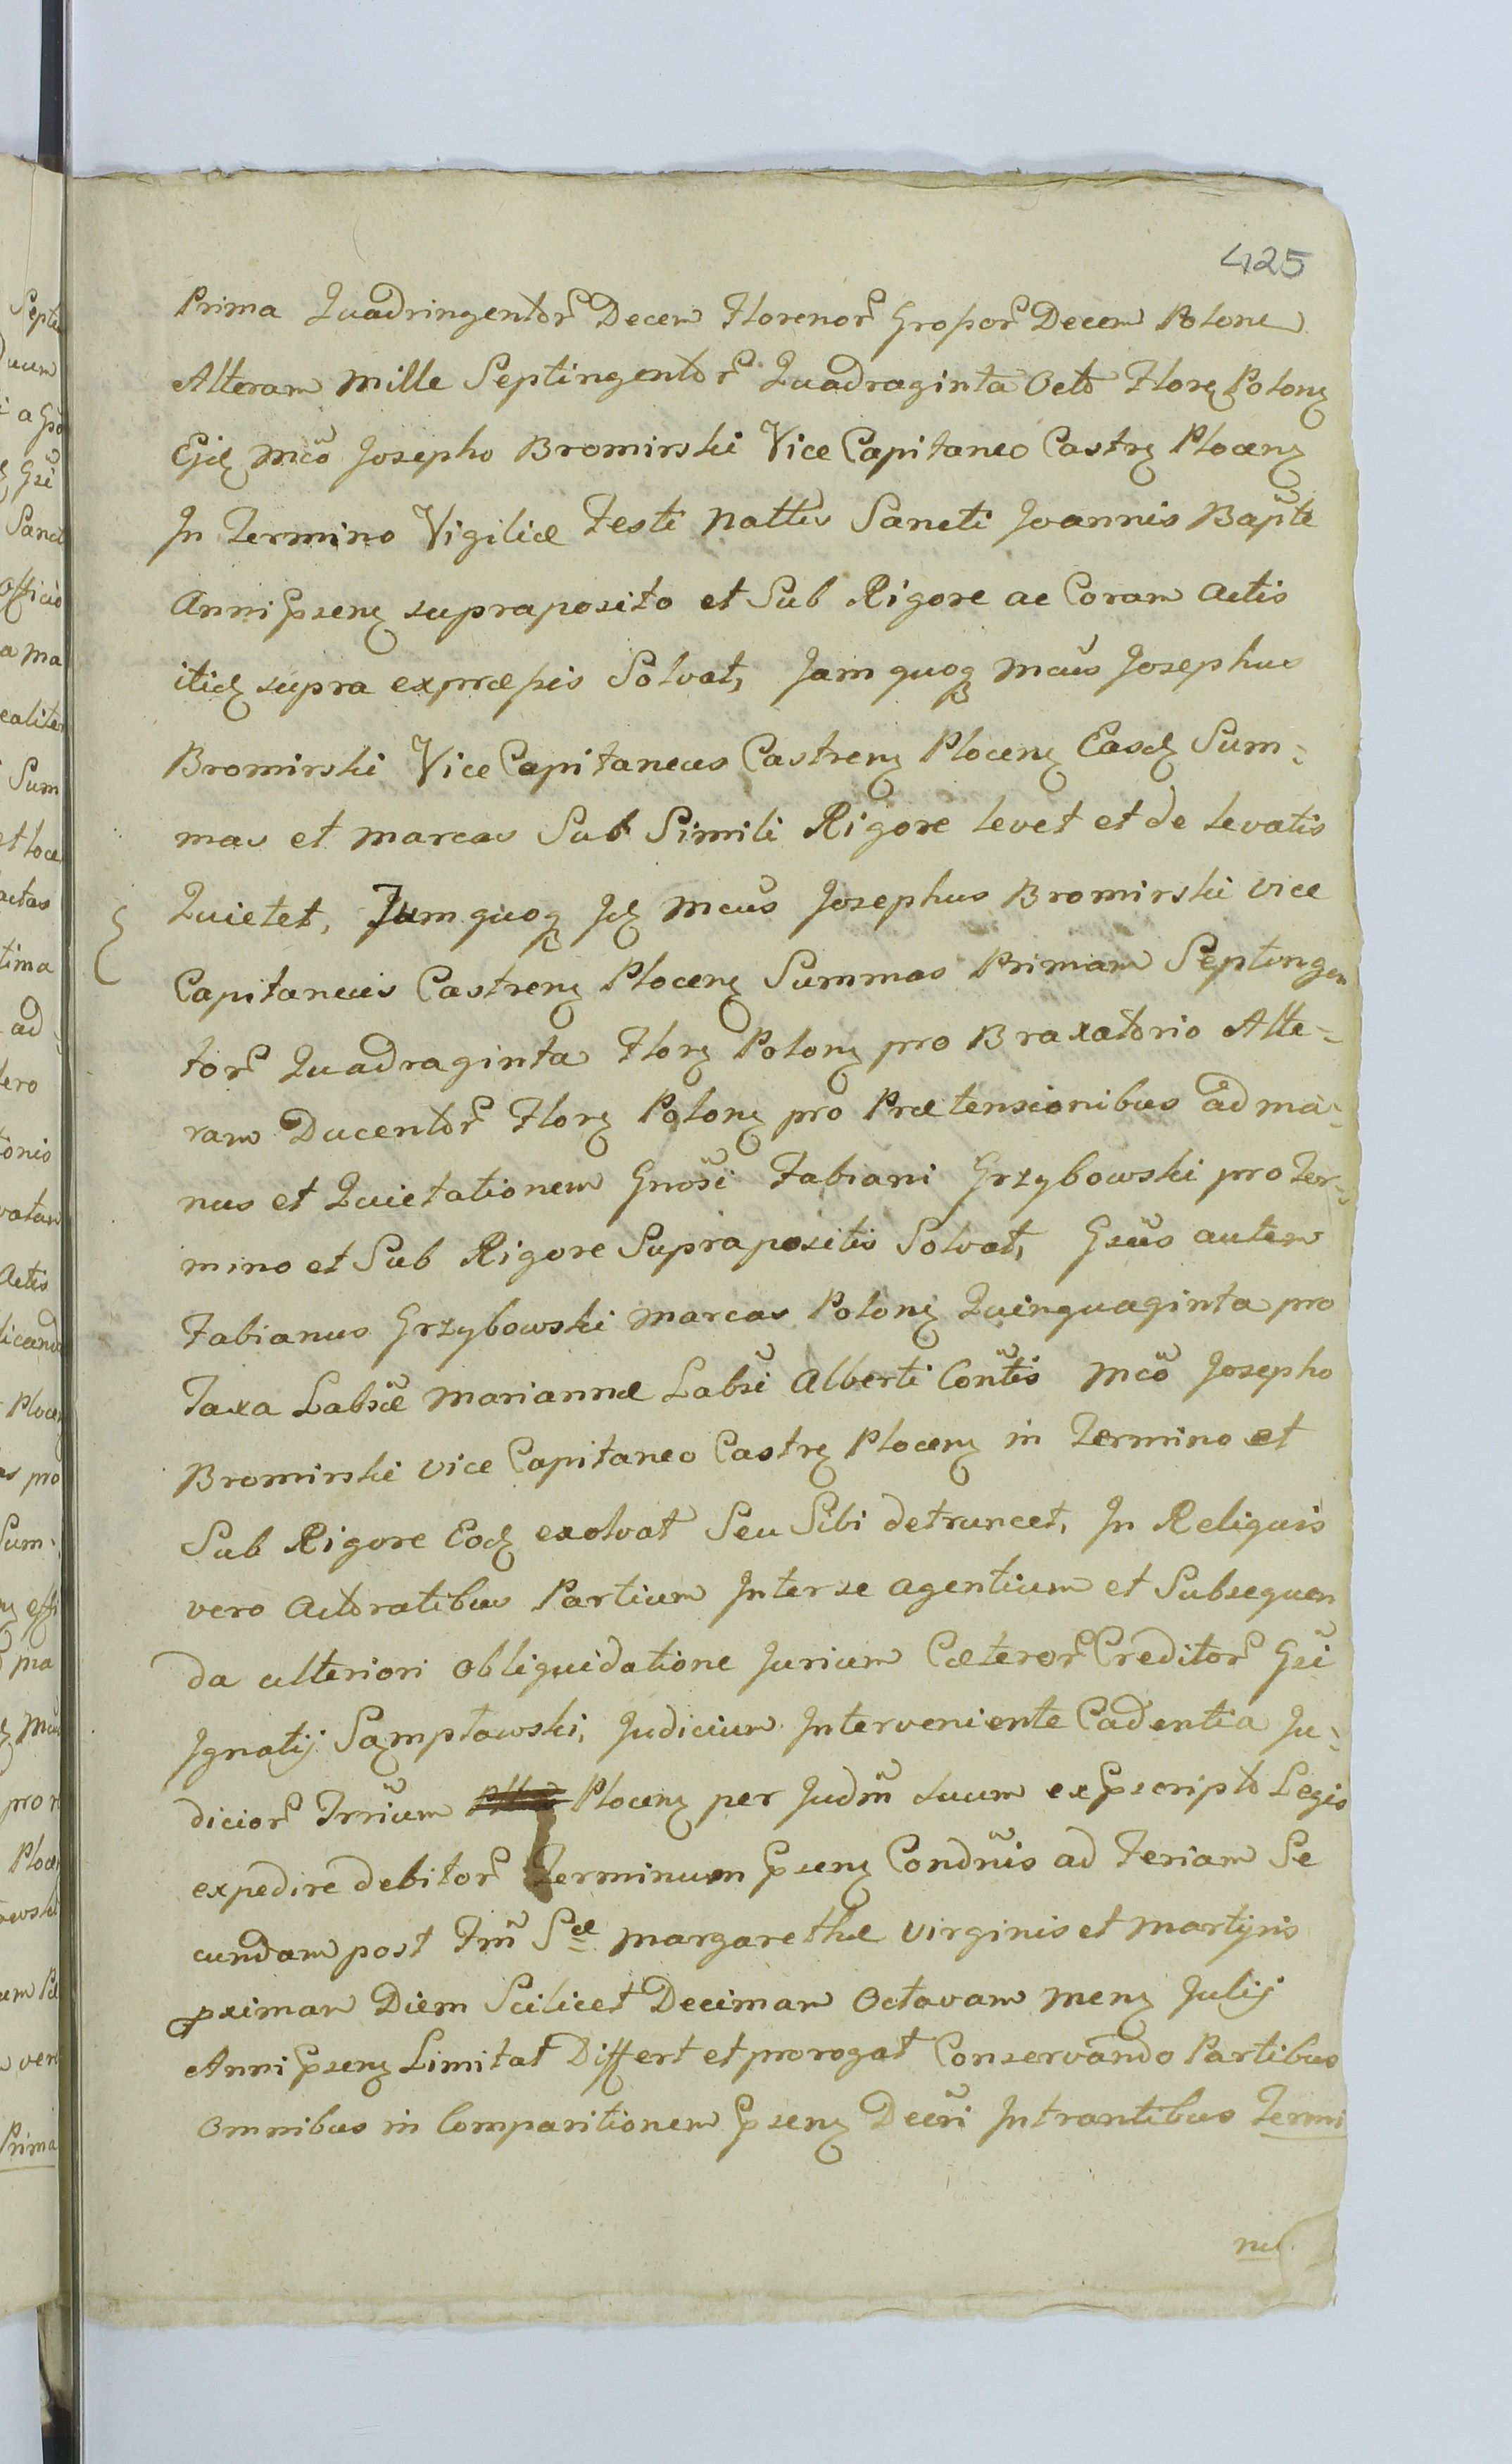 425
Prima Quadringentor Decem Florenor Grossor Decem Polone
Alteram Mille Septingentor Quadraginta Octo Flore Polone
Ejd Mco Josepho Bromirski Vice Capitaneo Castre Plocen
In Termino Vigiliæ Festi Nattis Sancti Joannis Bapte
Anni Psen supraposito et Sub Rigore ac Coram Actis
itid supra expræssis Solvat, Jam quoq Mcus Josephus
Bromirski Vice Capitaneus Castren Plocen Easd Sum=
mas et marcas Sub Simili Rigore levet et de levatis
Quietet, Jam quoq Jd Mcus Josephus Bromirski vice
Capitaneus Castren Plocen Summas Primam Septingen
tor Quadraginta Flor Polon pro Braxatorio Alte=
ram Ducentor Flor Polon pro Prætensionibus ad ma=
nus et Quietationem Gnosi Fabiani Grzybowski pro Ter=
mino et Sub Rigore Suprapositis Solvat, Gsus autem
Fabianus Grzybowski marcas Polon Quinquaginta pro
Taxa Labsæ Mariannæ Labsi Alberti Contis Mco Josepho
Bromirski vice Capitaneo Castre Plocen in Termino et
Sub Rigore Eod exolvat Seu Sibi detruncet, In Reliquis
vero Actoratibus Partium Inter se agentium et Subsequen
da ulteriori obliquidatione Jurium Cæteror Creditor Gsi
Ignatij Sampławski, Judicium Interveniente Cadentia Ju=
dicior Trrium Plocen per Judm suum ex Pscripto Legis
expedire debitor Terminum Psen Condnis ad Feriam Se
cundam post Fm Sæ Margarethæ Virginis et Martyris
pximam Diem Scilicet Decimam Octavam Mens Julij
Anni Psen Limitat Differt et prorogat Conservando Partibus
Omnibus in Comparitionem Psen Decri Intrantibus Termi
nu